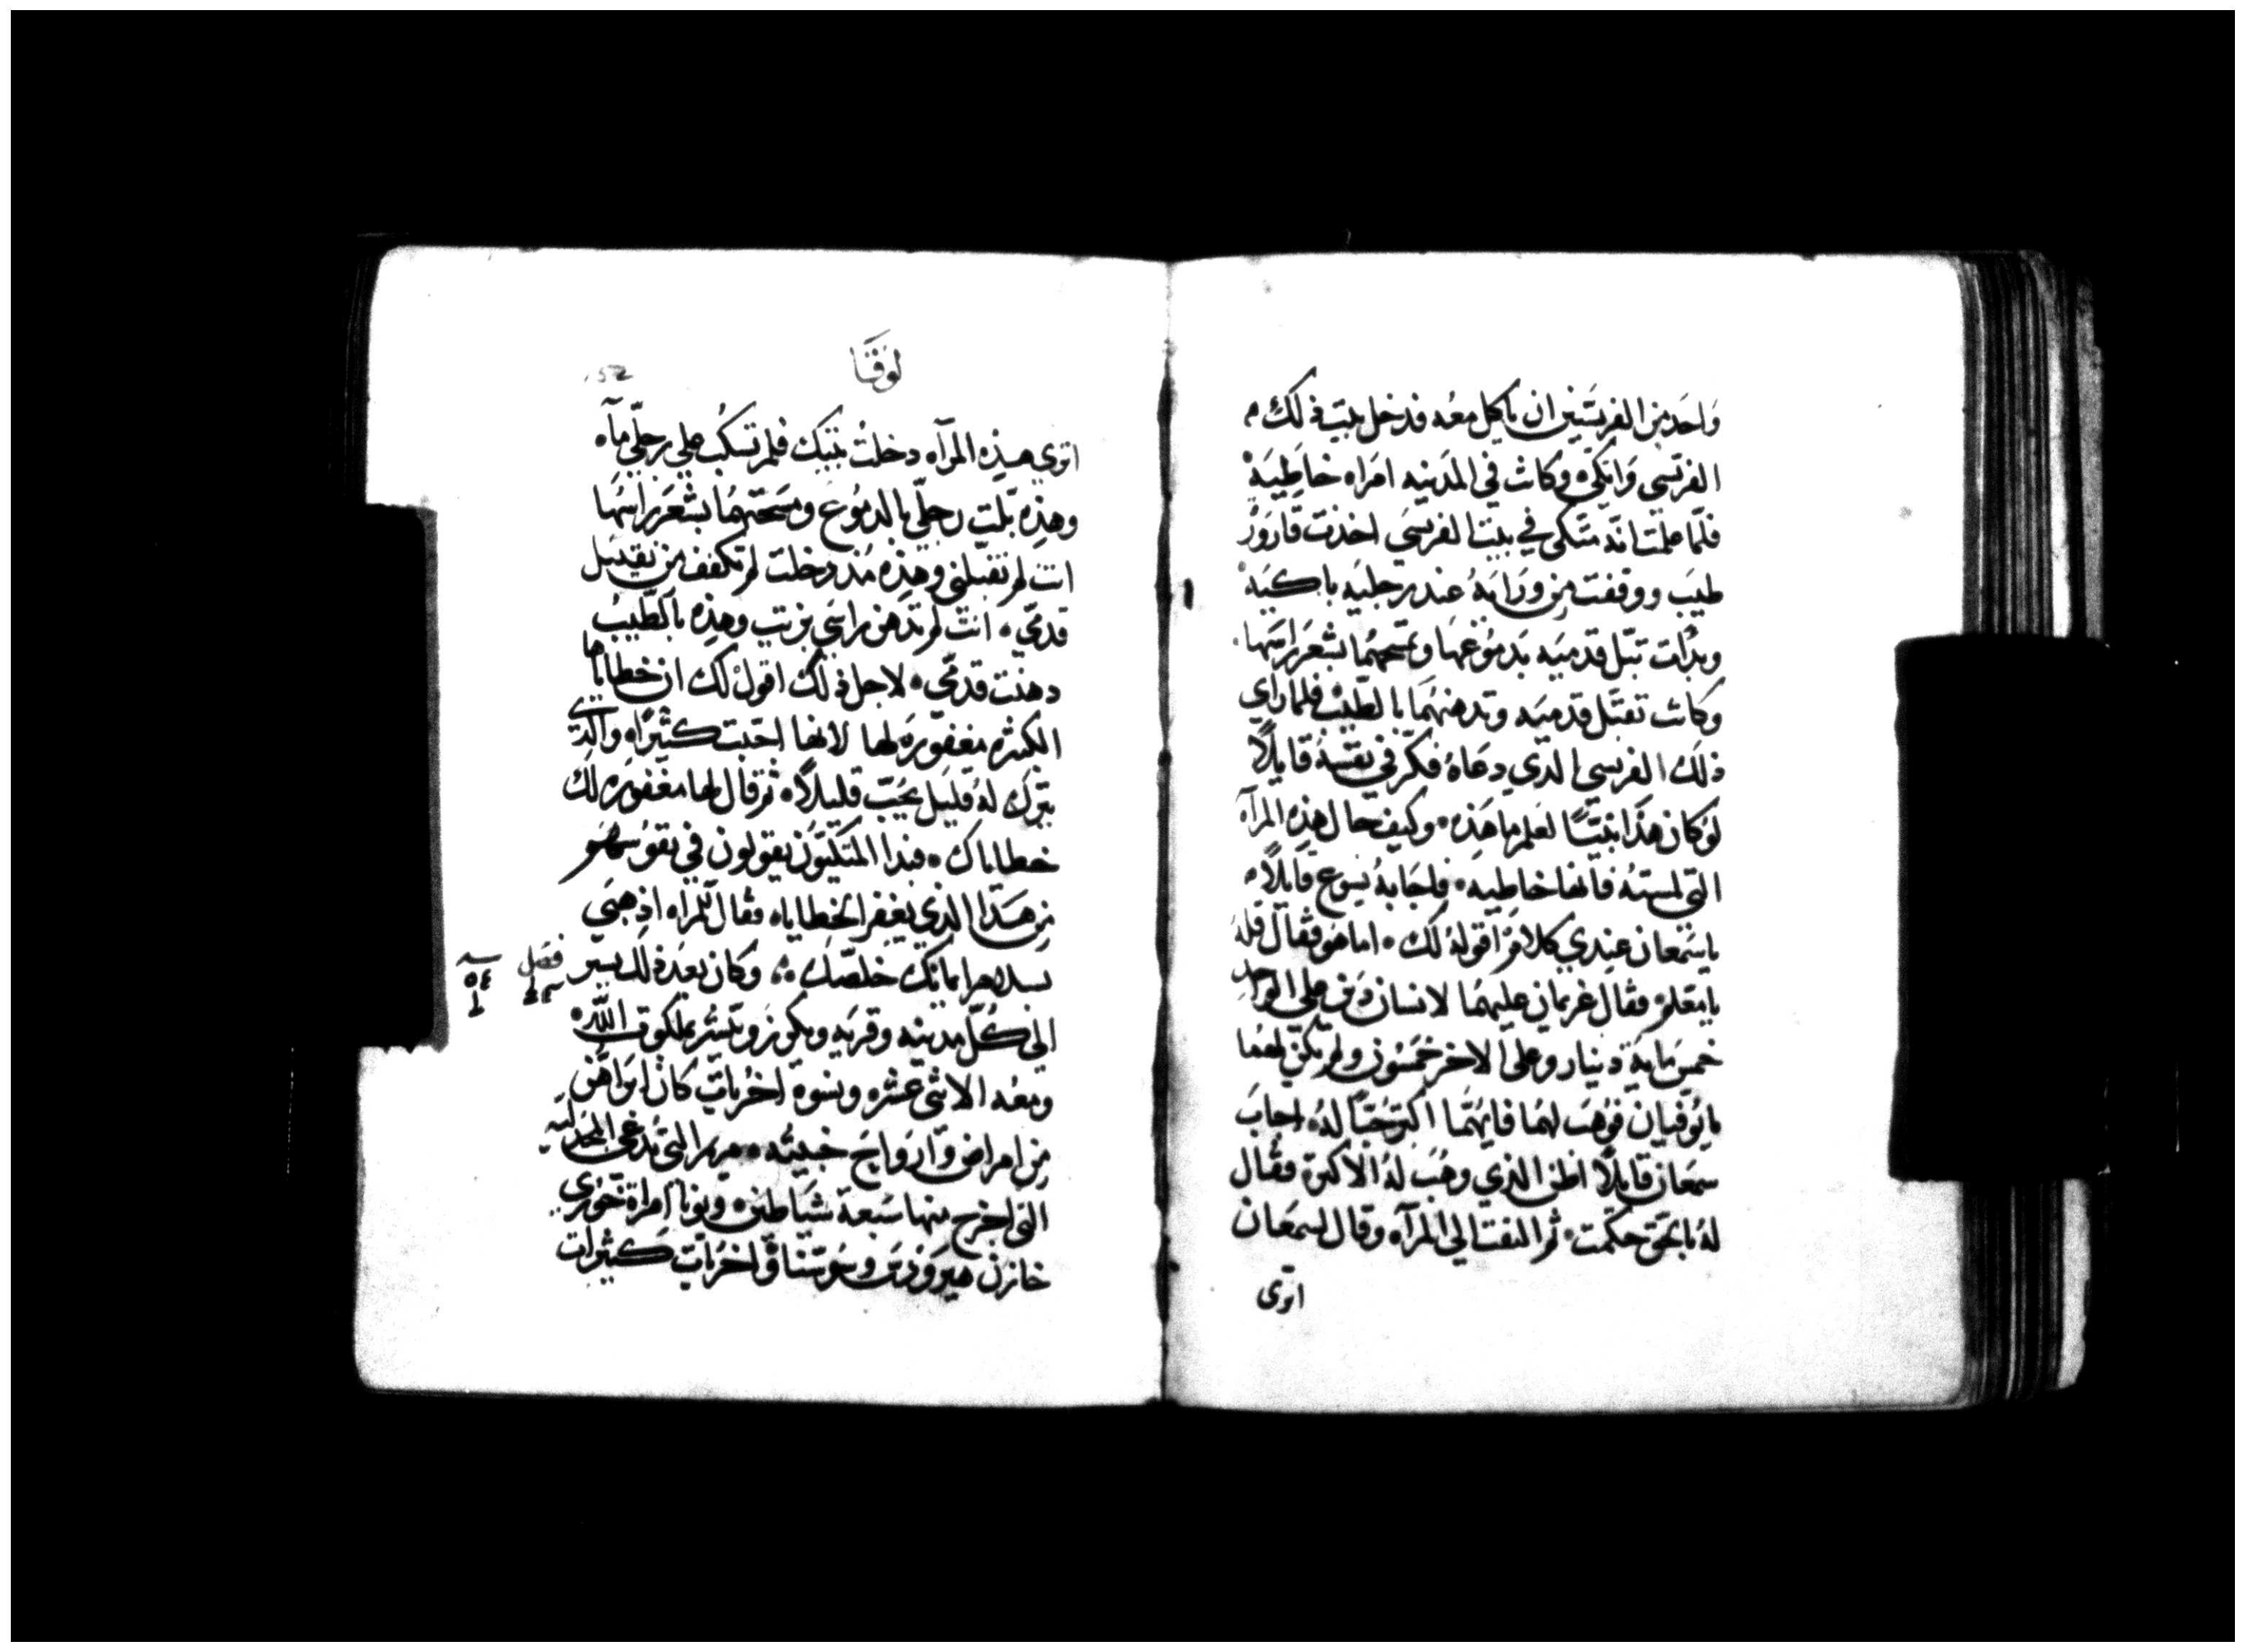 واحد من الفريسيين ان ياكل معه فدخل بيت ذلك
الفريسي واتكي وكانت في المدينه امراه خاطيه
فلما علمت انه متكي في بيت الفريسي اخذت قارورة
طيب ووقفت من ورايه عند رجليه باكيه
وبدات تبل قدميه بدموعها وتمسحهما بشعر راسها
وكانت تقبل قدميه وتدهنهما بالطيب فلما راي
ذلك الفريسي الذي دعاه فكر في نفسه قايلاً
لوكان هذا نبيًا لعلم ما هذه وكيف حال هذه المرآه
التي لمسته فانها خاطيه فاجابه يسوع قايلاً
ياسمعان عندي كلامًا اقوله لك اما هو فقال قله
يا معلم فقال غريمان عليهما لانسان دين علي الواحد
خمس ماية دينار وعلي الاخر خمسون ولم يكن لهما
ما يوفيان فوهب لهما فايهما اكثر حبًا له اجاب
سمعان قايلاً اظن الذي وهب له الاكثر فقال
له بالحق حكمت ثم التفت الي المرآه وقال لسمعان
اتري
لوقا
152
اتري هذه المرآه دخلت بيتك فلم تسكب علي رجلي مآء
وهذه بلت رجلي بالدموع ومسحتهما بشعر راسها
انت لم تقبلني وهذه مذ دخلت لم تكفف من تقبيل
قدمي انت لم تدهن راسي بزيت وهذه بالطيب
دهنت قدمي لاجل ذلك اقول لك ان خطاياها
الكثيره مغفوره لها لانها احبت كثيرًا والذي
يترك له قليل يحب قليلاً ثم قال لها مغفوره لك
خطاياك فبدا المتكيون يقولون في نفوسهم
من هذا الذي يغفر الخطايا فقال للمراه اذهبي
بسلام ايمانك خلصك وكان بعد ذلك يسير
فصل
الي كل مدينه وقريه ويكرز ويبشر بملكوت الله
ومعه الاثني عشره ونسوه اخريات كان ابراهن
من امراض وارواح خبيثه مريم التي تدعي المجدليه
التي اخرج منها سبعة شياطين ويونا امراة خوزي
خازن هيرودس وسوسنا واخريات كثيرات